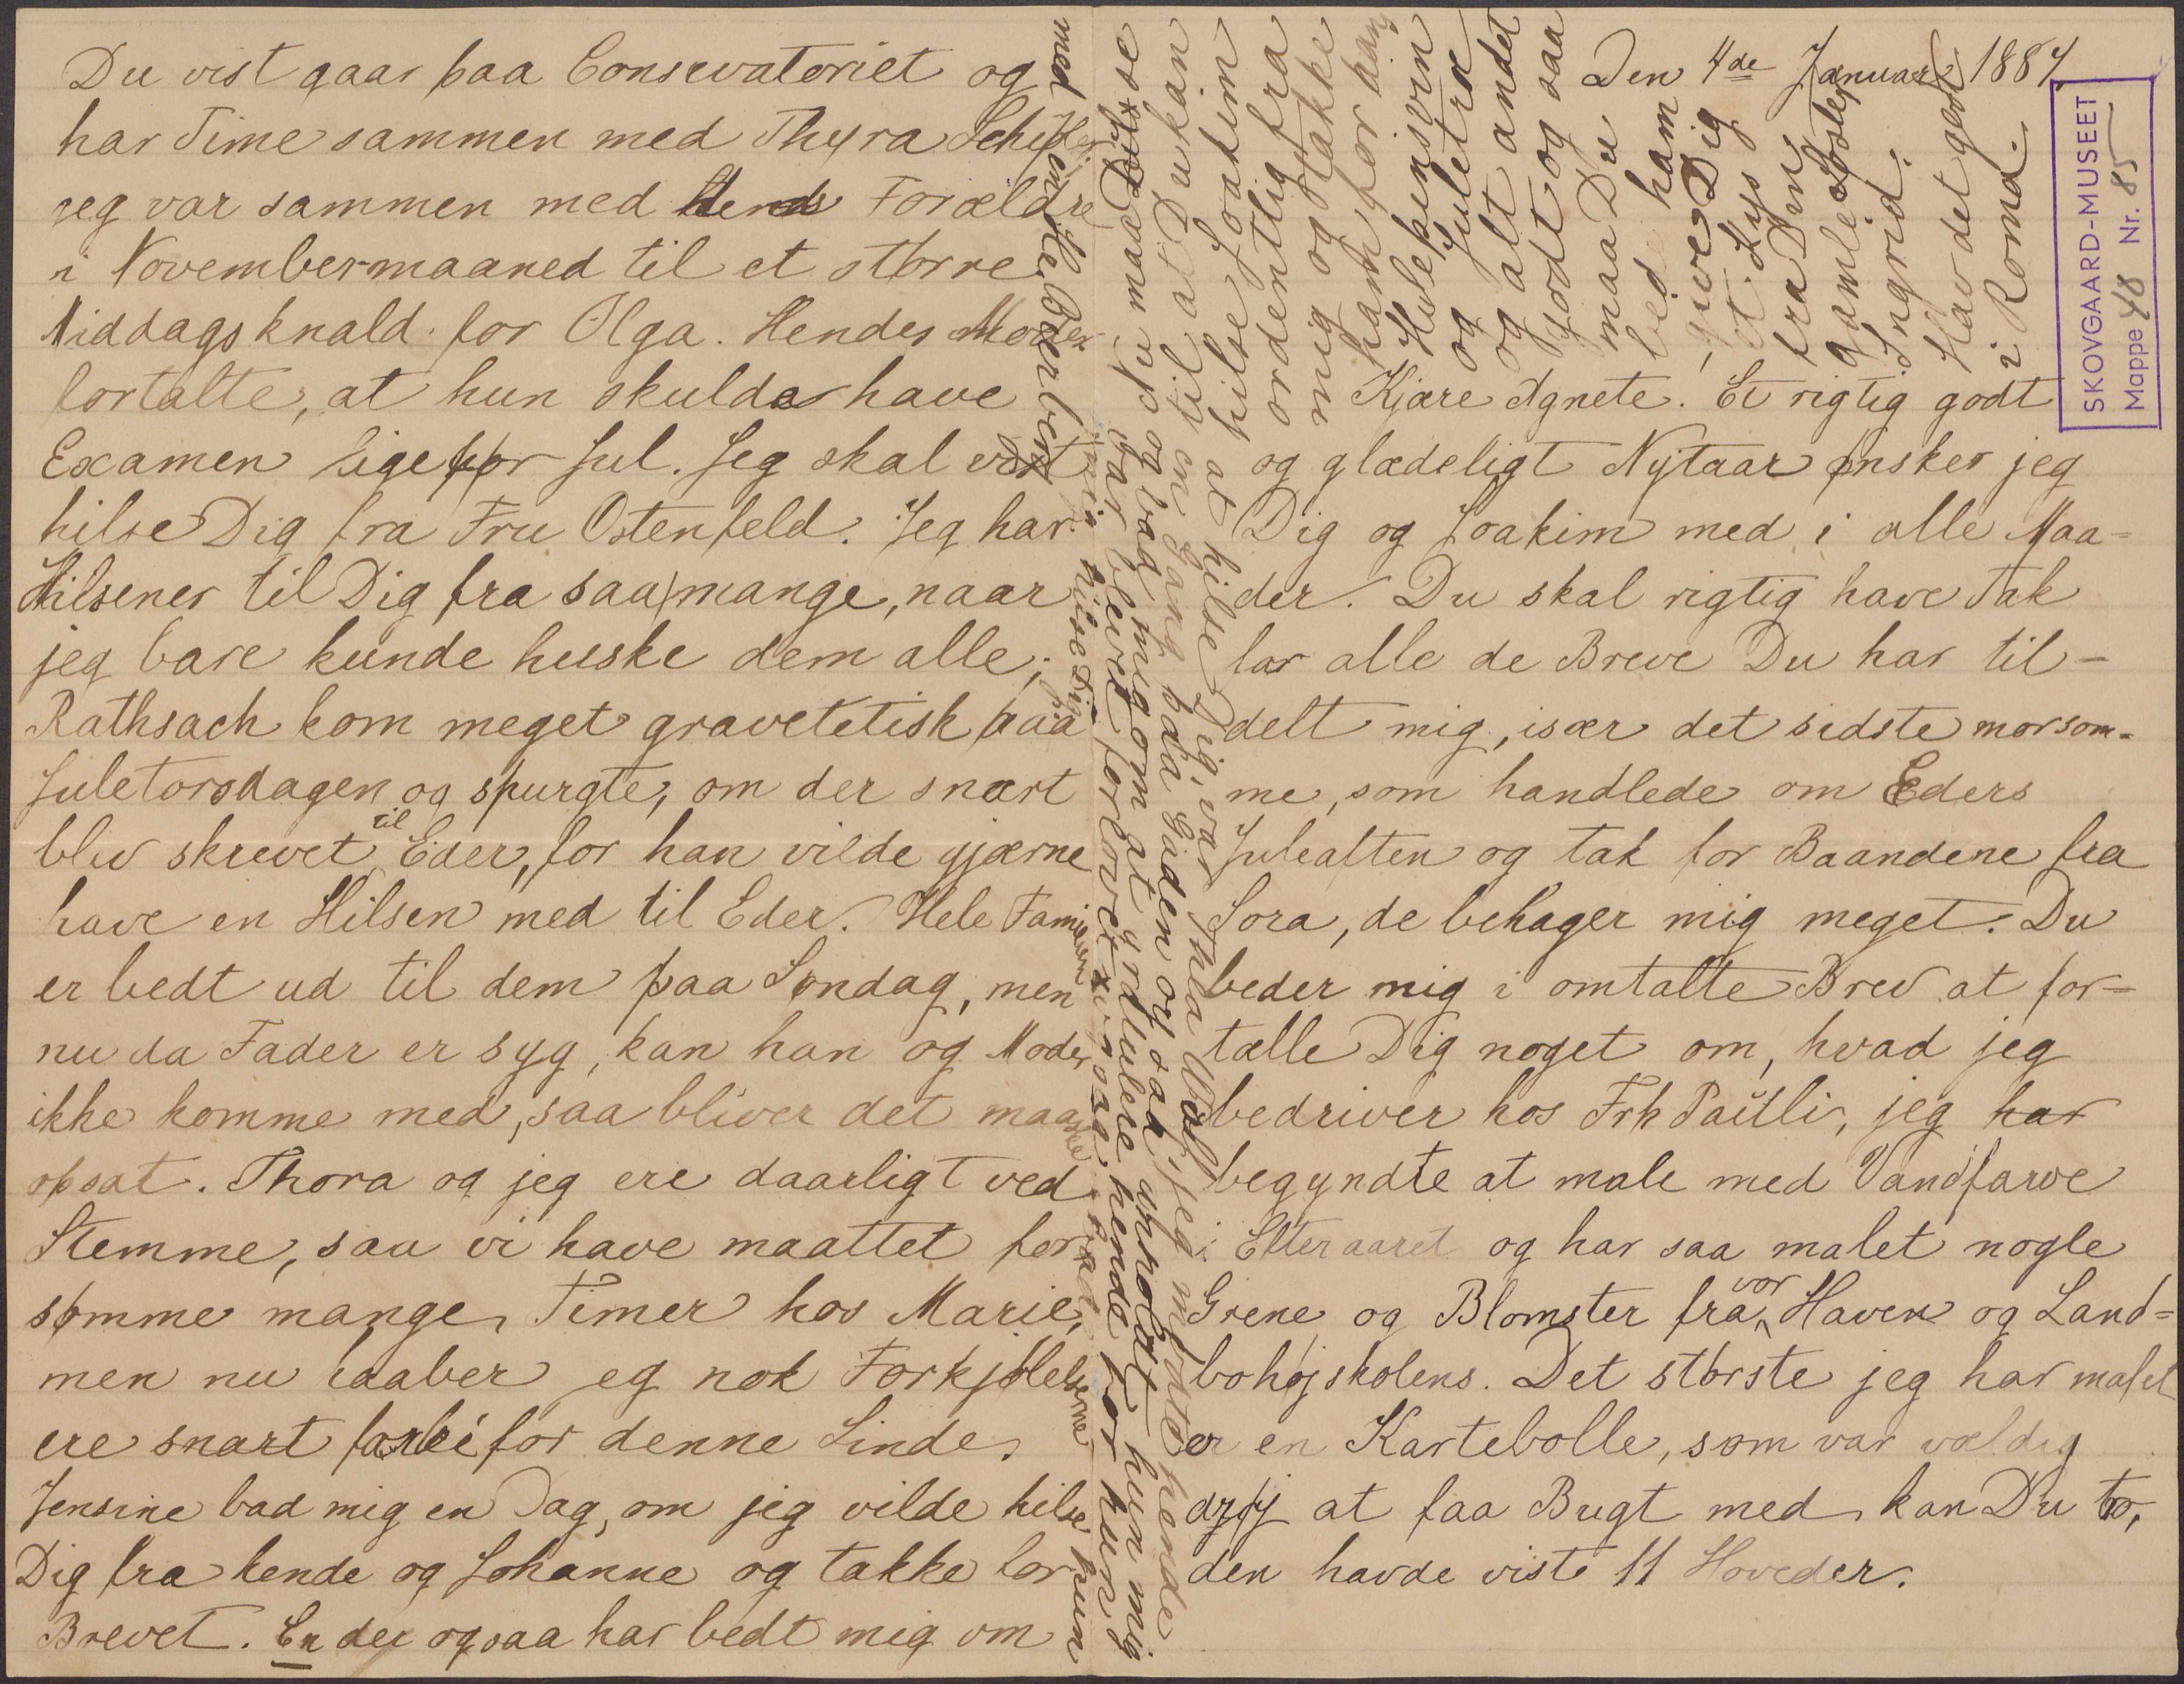 Den 4de Januar 1887
SKOVGAARD-MUSEET
Mappe 48 Nr. 85
Kjære Agnete! Et rigtig godt
og glædeligt Nytaar ønsker jeg
Dig og Joakim med i alle Maa-
der. Du skal rigtig have Tak
for alle de Breve Du har til-
delt mig, især det sidste morsom-
me, som handlede om Eders
Juleaften og tak for Baandene fra
Sora, de behager mig meget. Du
beder mig i omtalte Brev at for-
tælle Dig noget om, hvad jeg
bedriver hos Frk Paulli, jeg har
begyndte at male med Vandfarve
i Efteraaret og har saa malet nogle
Grene og Blomster fra vor Haven og Land-
bohøjskolens. Det største jeg har malet
er en Kartebolle, som var vældig
drøj at faa Bugt med kan Du tro,
den havde viste 11 Hoveder.
Du vist gaar paa Conservatoriet og
har Time sammen med Thyra
jeg var sammen med Hendes Forældre
i Novembermaaned til et større
Middagsknald for Olga. Hendes Moder
fortalte, at hun skulde have
Examen lige før Jul. Jeg skal vist
hilse Dig fra Fru Ostenfeld. Jeg har
Hilsener til Dig fra saa mange, naar
jeg bare kunde huske dem alle;
Rathsach kom meget gravetetisk paa
Juletorsdagen og spurgte, om der snart
blev skrevet til Eder, for han vilde gjærne
have en Hilsen med til Eder. Hele Familien
er bedt ud til dem paa Søndag, men
nu da Fader er syg, kan han og Moder
ikke komme med, saa bliver det maaske
opsat. Thora og jeg ere daarligt ved
Stemme, saa vi have maattet for
sømme mange Timer hos Marie,
men nu haaber jeg nok Forkjølelserne
ere snart forbi for denne Sinde.
Jensine bad mig en Dag, om jeg vilde hilse
Dig fra hende og Johanne og takke for
Brevet. En der ogsaa har bedt mig om
at hilse Dig, var Thea Wolf, jeg mødte hende
en Gang paa Gaden og saa anholdt hun mig
og bad mig om at gratulere hende for hun
var blevet forlovet
Nu maa
til at Du kan
hilse Joakim
ordentlig fra
mig og takke
ham for
og Juletræ
og alt andet
godt og saa
maa Du
bed ham
give Dig
et Kys
fra Din
gamle Søster
Ingrid.
Hav det godt
i Roma.